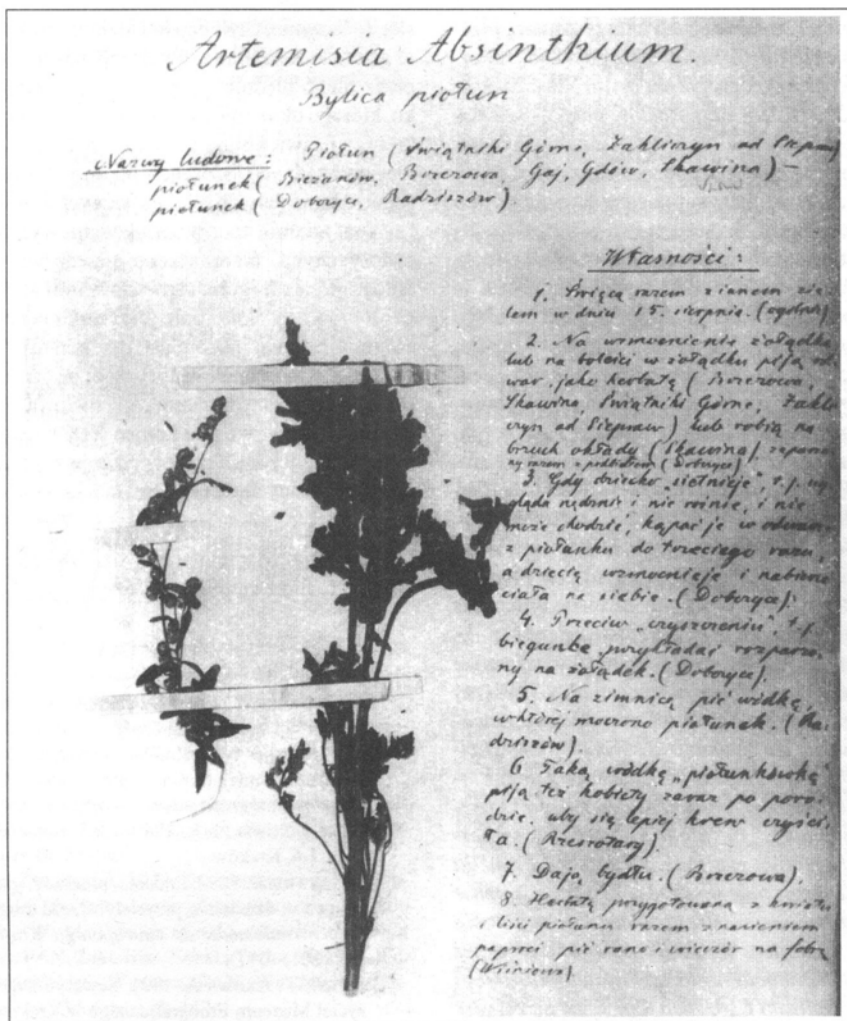 Artemisia Absinthium.
Bylica piołun
Nazwy ludowe: Piołun (Świątniki Górne, Zakliczyn ad Siepraw)
piołunek (Bieżanów, Brzezowa, Gaj, Gdów, Skawina) —
piołunek (Dobczyce, Radziszów)
Własności:
1. Święcą razem z innem zie-
lem w dniu 15. sierpnia. (ogólnie)
2. Na wzmocnienie żołądka
lub na boleści w żołądku piją od-
war jako herbatę (Brzezowa,
Skawina, Świątniki Górne, Zakli-
czyn ad Siepraw) lub robią na
brzuch okłady (Skawina) zaparzo-
ny razem z (Dobczyce)
3. Gdy dziecko „sietnieje", t.j. wy-
gląda nędznie i nie rośnie, i nie
może chodzić, kąpać je w odwarze
z piołunku do trzeciego razu,
a dziecię wzmocnieje i nabierze
ciała na siebie. (Dobczyce).
4. Przeciw „czyszczeniu", t.j.
biegunke przykładać rozparzo-
ny na żołądek. (Dobczyce).
5. Na zimnicę pić wódkę,
w której moczono piołunek. (Ra-
dziszów).
6 Taką wódkę „piołunkówkę"
piją też kobiety zaraz po poro-
dzie, aby się lepiej krew czyści-
ła. (Rzeszotary).
7. Dają bydłu. (Brzezowa).
8. Herbatę przygotowaną z kwiatu
i liści piołunu razem z nasieniem
paproci pić rano i wieczór na febrę
(Wiśniowa)